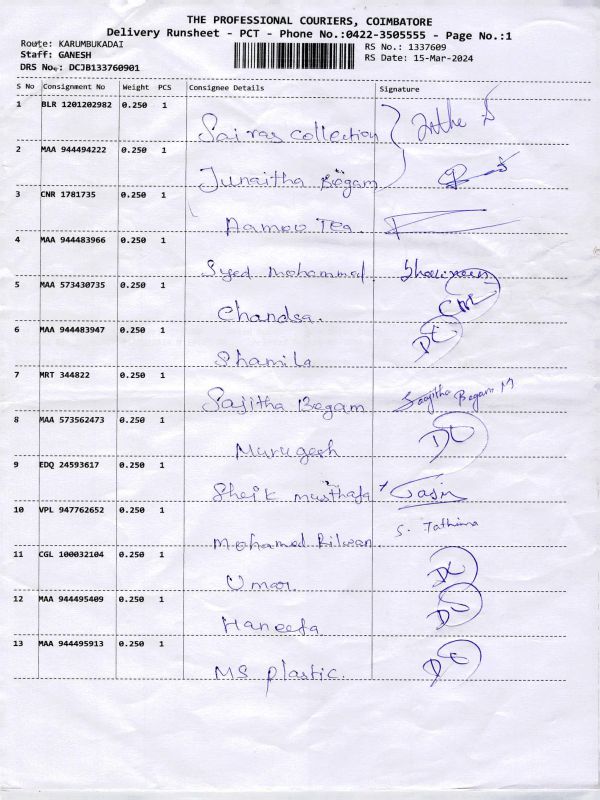 THE PROFESSIONAL COURIERS, COIMBATORE
Delivery Runsheet - PCT - Phone No.:0422-3505555 - Page No.:1
Route: KARUMBUKADAI
RS No.: 1337609
Staff: GANESH
RS Date: 15-Mar-2024
DRS No.: DCJB133760901
S No Consignment No Weight PCS Consignee Details Signature
1 BLR 1201202982 0.250 1
Sairas collection
2 MAA 944494222 0.250 1
Junaitha Begam
3 CNR 1781735 0.250 1
Tea
4 MAA 944483966 0.250 1
Syed mohammed.
5 MAA 573430735 0.250 1
Chandsa.
6 MAA 944483947 0.250 1
Shamila
7 MRT 344822 0.250 1
Sajitha Begam Sajitha Begam M
8 MAA 573562473 0.250 1
Murugesh
9 EDQ 24593617 0.250 1
Sheik musthafa
10 VPL 947762652 0.250 1
S. Fathima
mohamed Rilwan.
11 CGL 100032104 0.250 1
Umar.
12 MAA 944495409 0.250 1
Haneefa
13 MAA 944495913 0.250 1
MS plastic.